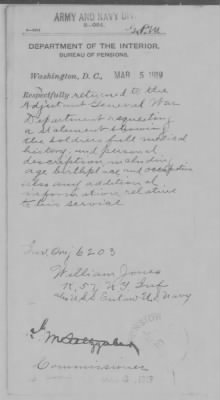 ARMY AND NAVY DIV.
DEPARTMENT OF THE INTERIOR,
BUREAU OF PENSIONS,
Washington, D.C., MAR 5
Respectfully returned to the
Adjutant General War
Department requesting
a statement showing
the soldiers full medical
history, and personal
description including
age birthplace and occupation
also any additional
information relative
to his service
6203
William Jones
K, 57 N.Y. Inf
Navy
Commissioner